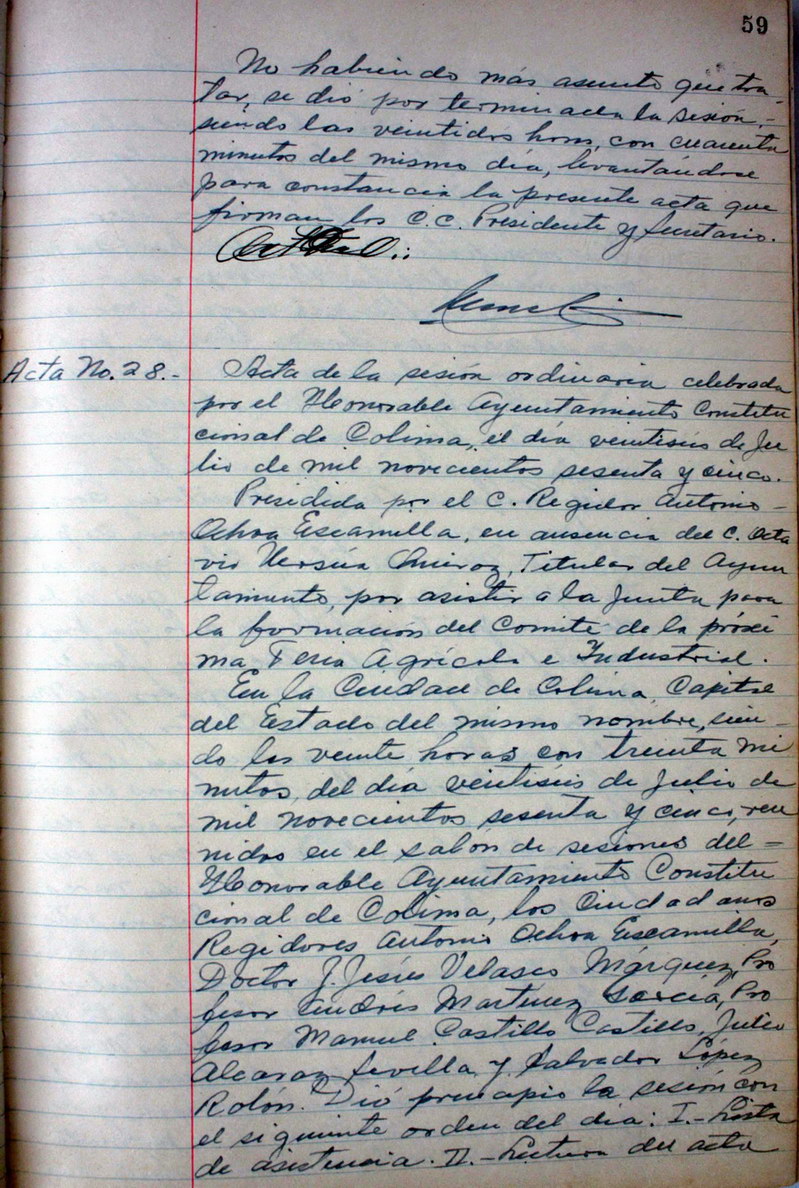 59
No habiendo más asunto que tra-
tar, se dió por terminada la sesión,-
siendo las veintidos horas, con cuarenta
minutos del mismo día, levantándose
para constancia la presente acta que
firman los C.C. Presidente y Secretario.
Acta No. 28.-
Acta de la sesión ordinaria celebrada
por el Honorable Ayuntamiento Constitu
cional de Colima, el día veintiseis de Ju
lio de mil novecientos sesenta y cinco.
Presidida por el C. Regidor Antonio-
Ochoa Escamilla, en ausencia del C. Octa
vio Quiroz, Titular del Ayun
tamiento, por asistir a la Junta para
la formación del Comité de la próxi
ma Feria Agrícola e Industrial.
En la Ciudad de Colima, Capital
del Estado del mismo nombre, sien-
do las veinte horas con treinta mi
nutos, del día veintiseis de Julio de
mil novecientos sesenta y cinco, reu
nidos en el salón de sesiones del-
Honorable Ayuntamiento Constitu
cional de Colima, los Ciudadanos
Regidores Antonio Ochoa Escamilla,
Doctor J. Jesús Velasco Márquez, Pro
fesor Andrés Martinez García, Pro
fesor Manuel Castillo Castillo, Julio
Alcaraz Sevilla y Salvador López
Rolón. Dió principio la sesión con
el siguiente orden del dia: I.- Lista
de asistencia. II.- Lectura del acta